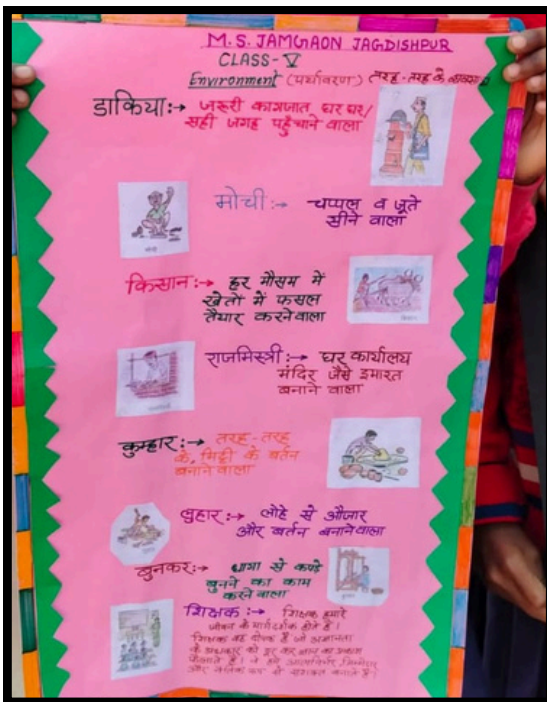 M.S. JAMGAON JAGDISHPUR
CLASS-V
Environment (पर्यावरण) तरह-तरह के व्यवसाय
डाकिया:→ जरूरी कागजात घर घर/
सही जगह पहुँचाने वाला
मोची:→ चप्पल व जूते
सीने वाला
मोची
किसान:→ हर मौसम में
खेतों में फसल
तैयार करनेवाला
किसान
राजमिस्त्री:→ घर कार्यालय
मंदिर जैसे इमारत
बनाने वाला
कुम्हार:→ तरह-तरह
के, मिट्टी के बर्तन
बनाने वाला
लुहार:→ लोहे से औजार
और बर्तन बनानेवाला
बुनकर:→ धागा से कपड़े
बुनने का काम
करनेवाला
शिक्षक:→ शिक्षक हमारे
जीवन के मार्गदर्शक होते हैं।
शिक्षक वह दीपक हैं जो अज्ञानता
के अंधकार को दूर कर ज्ञान का प्रकाश
फैलाते हैं। वे हमें आत्मनिर्भर,
और नैतिक रूप से सशक्त बनाते हैं।